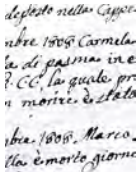 deposto nella Cappe
mbre 1808 Carmela
a di pasma in e
C.C. la quale pro
n morire è stato
bia. 1808. Marco
lla è morto giorno